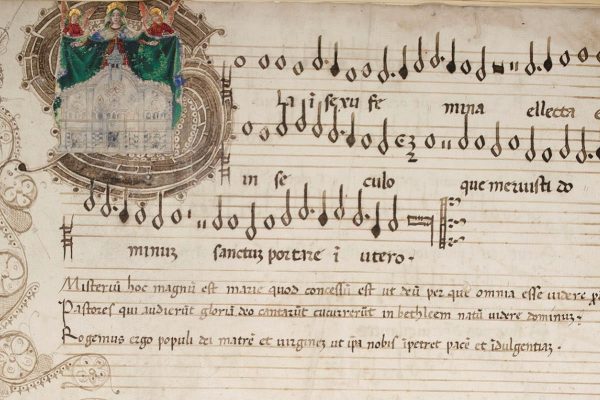 la ī sexu fe mina ellecta e
in se culo que meruisti do
minus sanctus portare ī utero.
Misteriū hoc magnū est marie quod concessū est ut deū per que omnia esse videre
Pastores qui audierūt gloriā deo cantarūt cucurrerūt in bethleem natū videre dominus.
Rogemus ergo populi dei matrē et virginez ut ip̄a nobis īpetret pacē et īdulgentiaz.